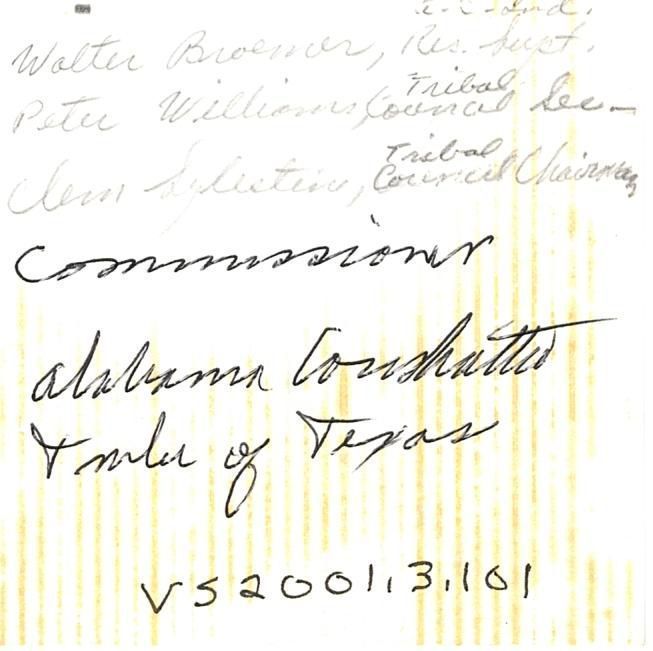 Walter Broemer, Res. Supt.
Peter Williams, Tribal Council Sec.
Clem Sylestine, Tribal Council Chairman
Commissioner
Alabama Coushatta
Tribe of Texas
VS2001.3.101